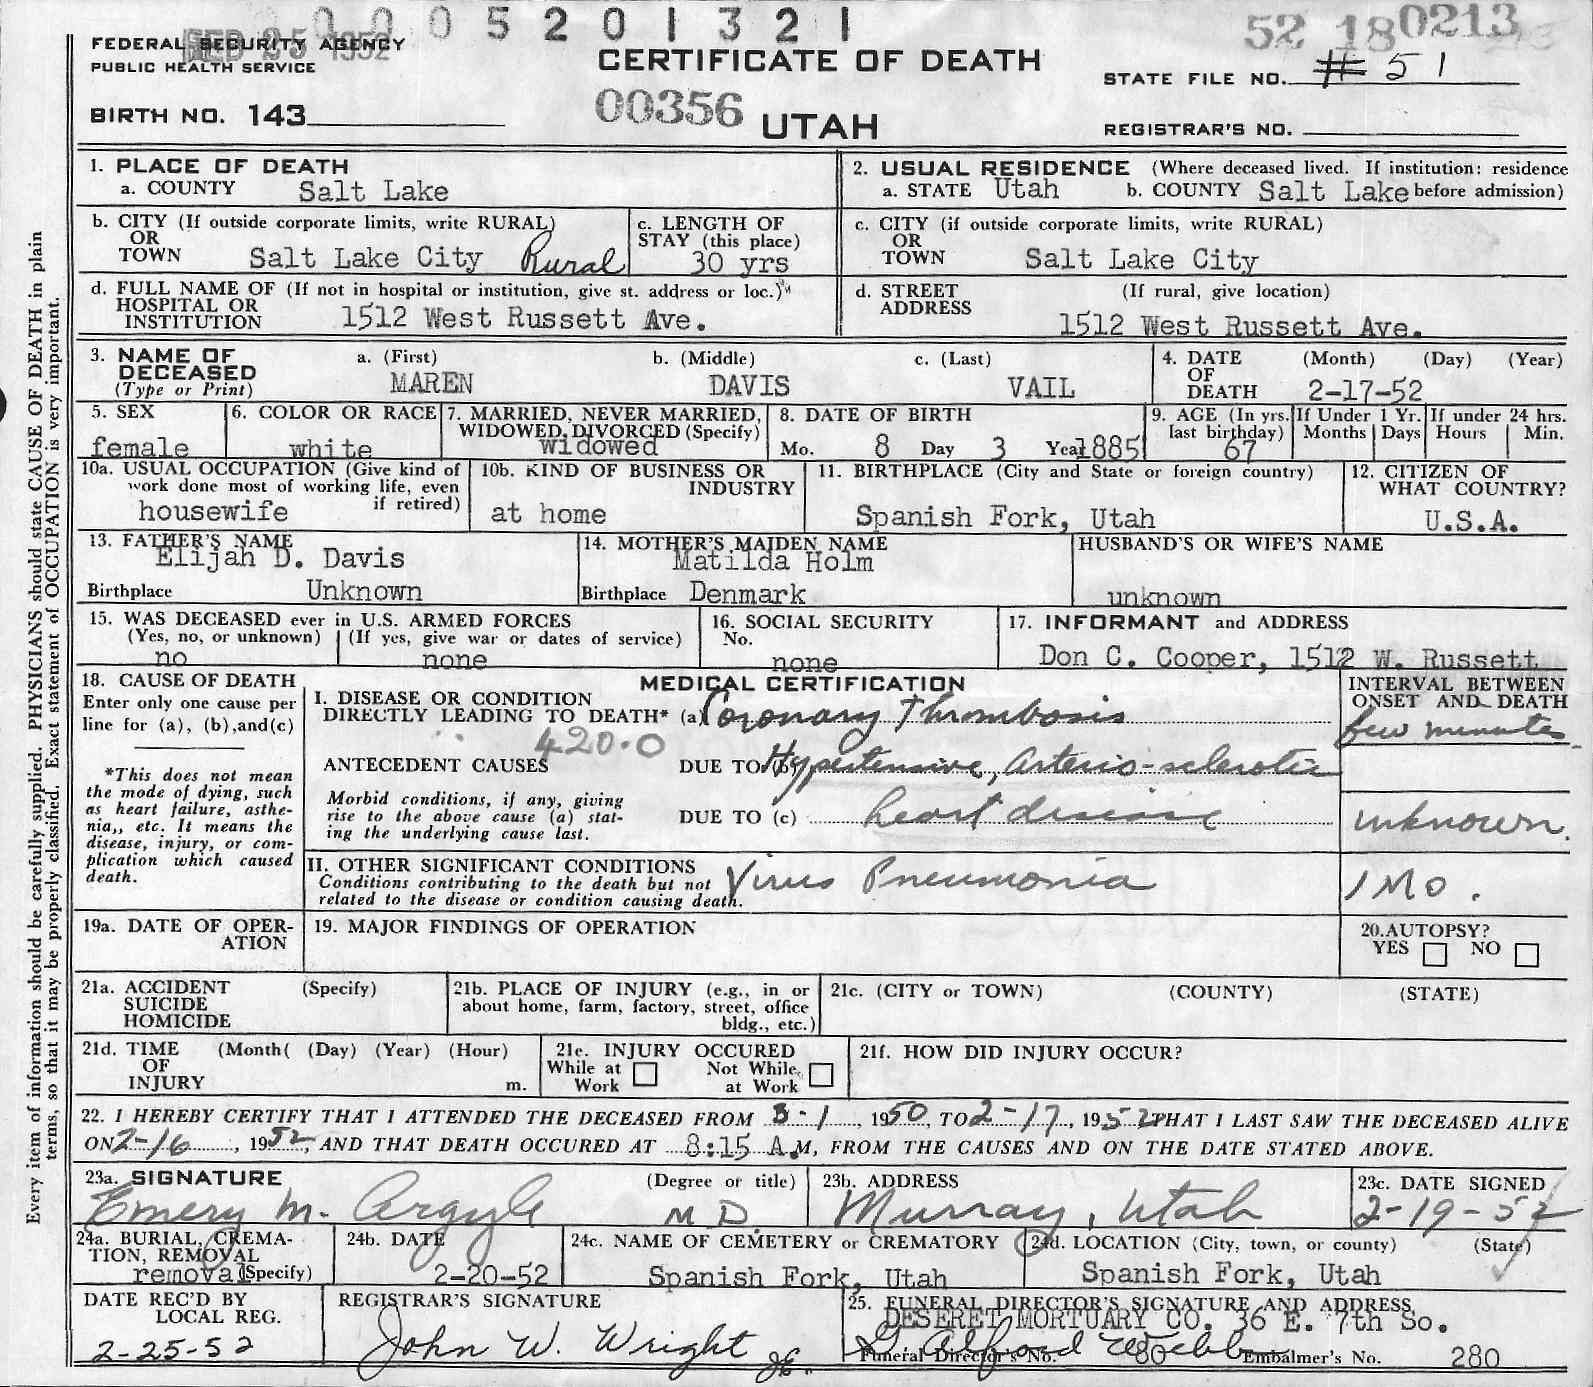 0005201321
52 180213
FEDERAL SECURITY AGENCY
FEB 25 1952
PUBLIC HEALTH SERVICE
CERTIFICATE OF DEATH
STATE FILE NO. # 51
BIRTH NO. 143
00356
UTAH
REGISTRAR'S NO.
1. PLACE OF DEATH
a. COUNTY Salt Lake
2. USUAL RESIDENCE (Where deceased lived. If institution: residence
a. STATE Utah b. COUNTY Salt Lake before admission)
b. CITY (If outside corporate limits, write RURAL)
OR
TOWN Salt Lake City Rural
c. LENGTH OF
STAY (this place)
30 yrs
c. CITY (if outside corporate limits, write RURAL)
OR
TOWN Salt Lake City
d. FULL NAME OF (If not in hospital or institution, give st. address or loc.)
HOSPITAL OR
INSTITUTION 1512 West Russett Ave.
d. STREET (If rural, give location)
ADDRESS
1512 West Russett Ave.
3. NAME OF a. (First) b. (Middle) c. (Last)
DECEASED
(Type or Print) MAREN DAVIS VAIL
4. DATE (Month) (Day) (Year)
OF
DEATH 2-17-52
5. SEX
female
6. COLOR OR RACE
white
7. MARRIED, NEVER MARRIED,
WIDOWED, DIVORCED (Specify)
widowed
8. DATE OF BIRTH
Mo. 8 Day 3 Year 1885
9. AGE (In yrs. last birthday)
67
If Under 1 Yr.
Months Days
If under 24 hrs.
Hours Min.
10a. USUAL OCCUPATION (Give kind of
work done most of working life, even
if retired)
housewife
10b. KIND OF BUSINESS OR
INDUSTRY
at home
11. BIRTHPLACE (City and State or foreign country)
Spanish Fork, Utah
12. CITIZEN OF
WHAT COUNTRY?
U.S.A.
13. FATHER'S NAME
Elijah D. Davis
Birthplace Unknown
14. MOTHER'S MAIDEN NAME
Matilda Holm
Birthplace Denmark
HUSBAND'S OR WIFE'S NAME
unknown
15. WAS DECEASED ever in U.S. ARMED FORCES
(Yes, no, or unknown) (If yes, give war or dates of service)
no none
16. SOCIAL SECURITY
No.
none
17. INFORMANT and ADDRESS
Don C. Cooper, 1512 W. Russett
18. CAUSE OF DEATH
Enter only one cause per
line for (a), (b),and(c)
*This does not mean
the mode of dying, such
as heart failure, asthe-
nia,, etc. It means the
disease, injury, or com-
plication which caused
death.
MEDICAL CERTIFICATION
I. DISEASE OR CONDITION
DIRECTLY LEADING TO DEATH* (a) Coronary Thrombosis
420.0
ANTECEDENT CAUSES DUE TO (b) Hypertensive, Arterio-sclerotic
Morbid conditions, if any, giving
rise to the above cause (a) stat-
ing the underlying cause last.
DUE TO (c) heart disease
II. OTHER SIGNIFICANT CONDITIONS
Conditions contributing to the death but not
related to the disease or condition causing death.
Virus Pneumonia
INTERVAL BETWEEN
ONSET AND DEATH
few minutes
unknown.
1 Mo.
19a. DATE OF OPER-
ATION
19. MAJOR FINDINGS OF OPERATION
20.AUTOPSY?
YES NO
21a. ACCIDENT (Specify)
SUICIDE
HOMICIDE
21b. PLACE OF INJURY (e.g., in or
about home, farm, factory, street, office
bldg., etc.)
21c. (CITY or TOWN) (COUNTY) (STATE)
21d. TIME (Month( (Day) (Year) (Hour)
OF
INJURY m.
21e. INJURY OCCURED
While at Work Not While at Work
21f. HOW DID INJURY OCCUR?
22. I HEREBY CERTIFY THAT I ATTENDED THE DECEASED FROM 3-1, 1950, TO 2-17, 1952 THAT I LAST SAW THE DECEASED ALIVE
ON 2-16, 1952, AND THAT DEATH OCCURED AT 8:15 A.M, FROM THE CAUSES AND ON THE DATE STATED ABOVE.
23a. SIGNATURE (Degree or title)
Emery M. Argyle M D.
23b. ADDRESS
Murray, Utah
23c. DATE SIGNED
2-19-52
24a. BURIAL, CREMA-
TION, REMOVAL
removal (Specify)
24b. DATE
2-20-52
24c. NAME OF CEMETERY or CREMATORY
Spanish Fork, Utah
24d. LOCATION (City, town, or county) (State)
Spanish Fork, Utah
DATE REC'D BY
LOCAL REG.
2-25-52
REGISTRAR'S SIGNATURE
John W. Wright
25. FUNERAL DIRECTOR'S SIGNATURE AND ADDRESS
DESERET MORTUARY CO. 36 E. 7th So.
G Alford Webb
Funeral Director's No. 80 Embalmer's No. 280
Every item of information should be carefully supplied. PHYSICIANS should state CAUSE OF DEATH in plain
terms, so that it may be properly classified. Exact statement of OCCUPATION is very important.